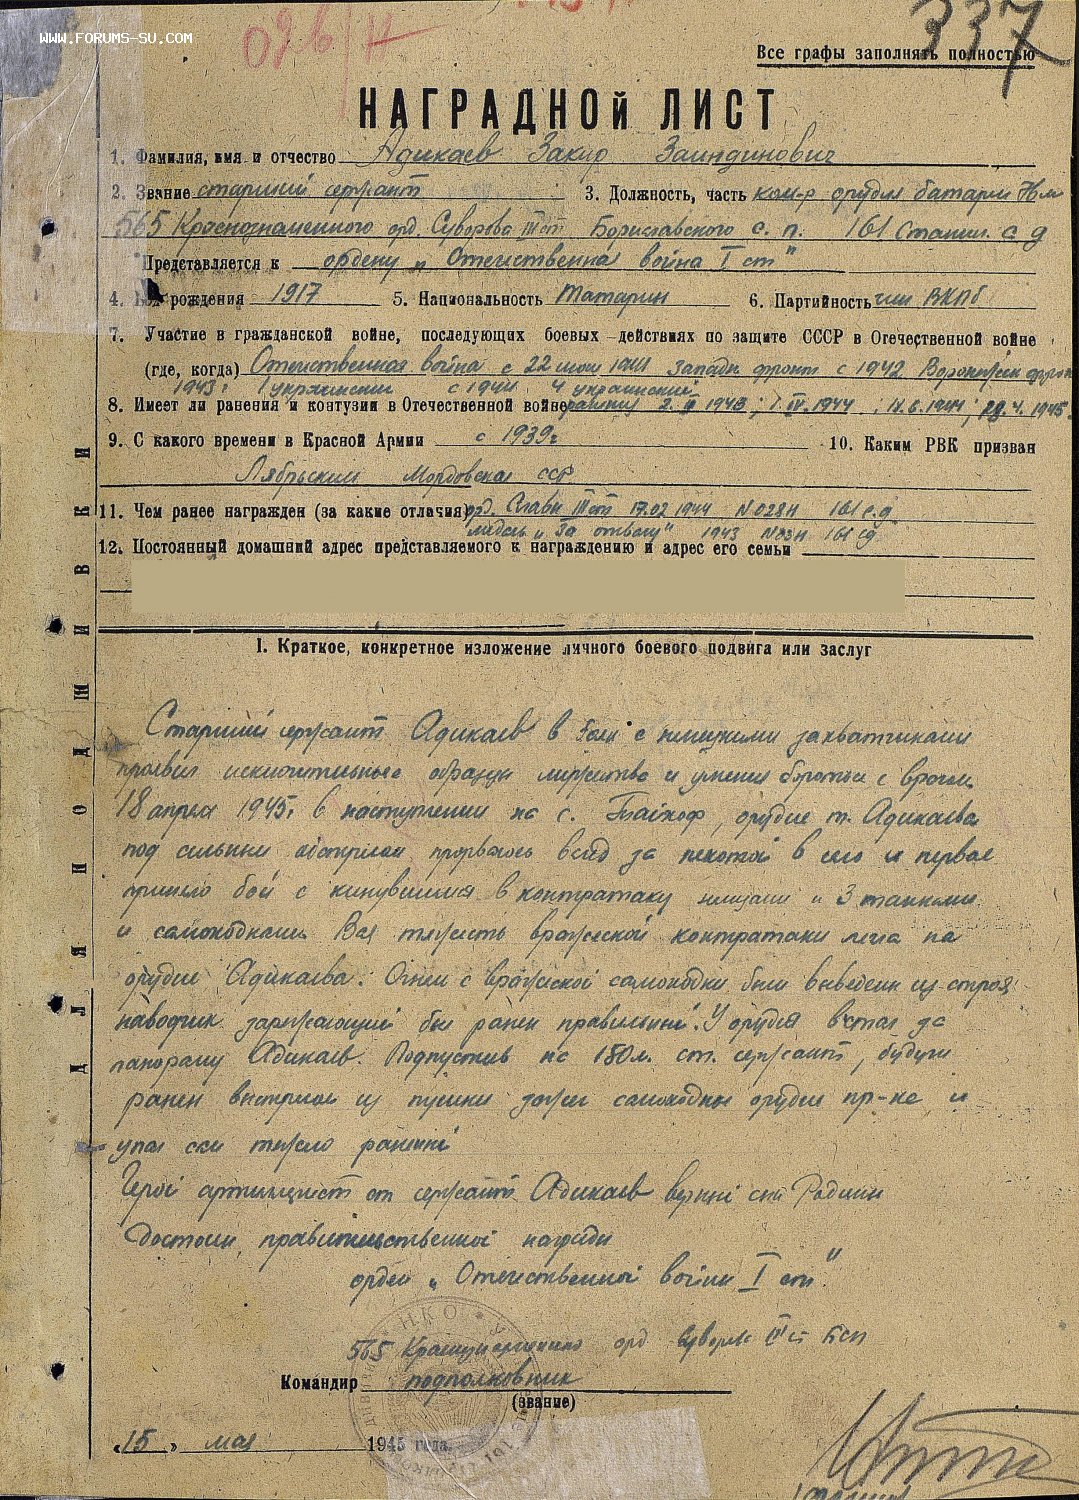 WWW.FORUMS-SU.COM
337
Все графы заполнять полностью
НАГРАДНОЙ ЛИСТ
1. Фамилия, имя и отчество Адикаев Закир Заиндинович
2. Звание старший сержант 3. Должность, часть ком-р орудия батареи
565 Краснознаменного орд. Суворова III ст Бориславского с. п. 161 Станисл. с д
Представляется к ордену „Отечественная война I ст"
4. рождения 1917 5. Национальность Татарин 6. Партийность чл ВКПб
7. Участие в гражданской войне, последующих боевых действиях по защите СССР в Отечественной войне
(где, когда) Отечественная война с 22 июня 1941 западн фронт с 1942 Воронежск фронт
1943г 1 украинский с 1944 4 украинский
8. Имеет ли ранения и контузии в Отечественной войне ранен 1943; 1.IV.1944; 1944; 1945.
9. С какого времени в Красной Армии с 1939г 10. Каким РВК призван
Лябрьским Мордовская ССР
11. Чем ранее награжден (за какие отличия) орд. Славы III ст 17.02 1944 N 028н 161 с.д.
медаль „За отвагу" 1943 N 03н 161 сд
12. Постоянный домашний адрес представляемого к награждению и адрес его семьи
1. Краткое, конкретное изложение личного боевого подвига или заслуг
Старший сержант Адикаев в боях с немецкими захватчиками
проявил исключительные образцы мужества и умения бороться с врагом.
18 апреля 1945г. в наступлении на с. орудие т. Адикаева
под сильным обстрелом прорвалось вслед за пехотой в село и первое
приняло бой с кинувшимися в контратаку немцами и 3 танками
и самоходками. Вся тяжесть вражеской контратаки легла на
орудие Адикаева. Огнем с вражеской самоходки были выведены из строя
наводчик заряжающий был ранен правильный. У орудия встал за
панораму Адикаев. Подпустив на 150м. ст. сержант, будучи
ранен выстрелом из пушки зажег самоходное орудие пр-ка и
упал тяжело раненный
Герой артиллерист ст сержант Адикаев верный сын Родины
достоин правительственной награды
орден „Отечественной войны I ст."
565 Краснознаменного орд Суворова III ст
Командир подполковник
(звание)
„15" мая 1945 года.
ДЛЯ ПОДШИВКИ